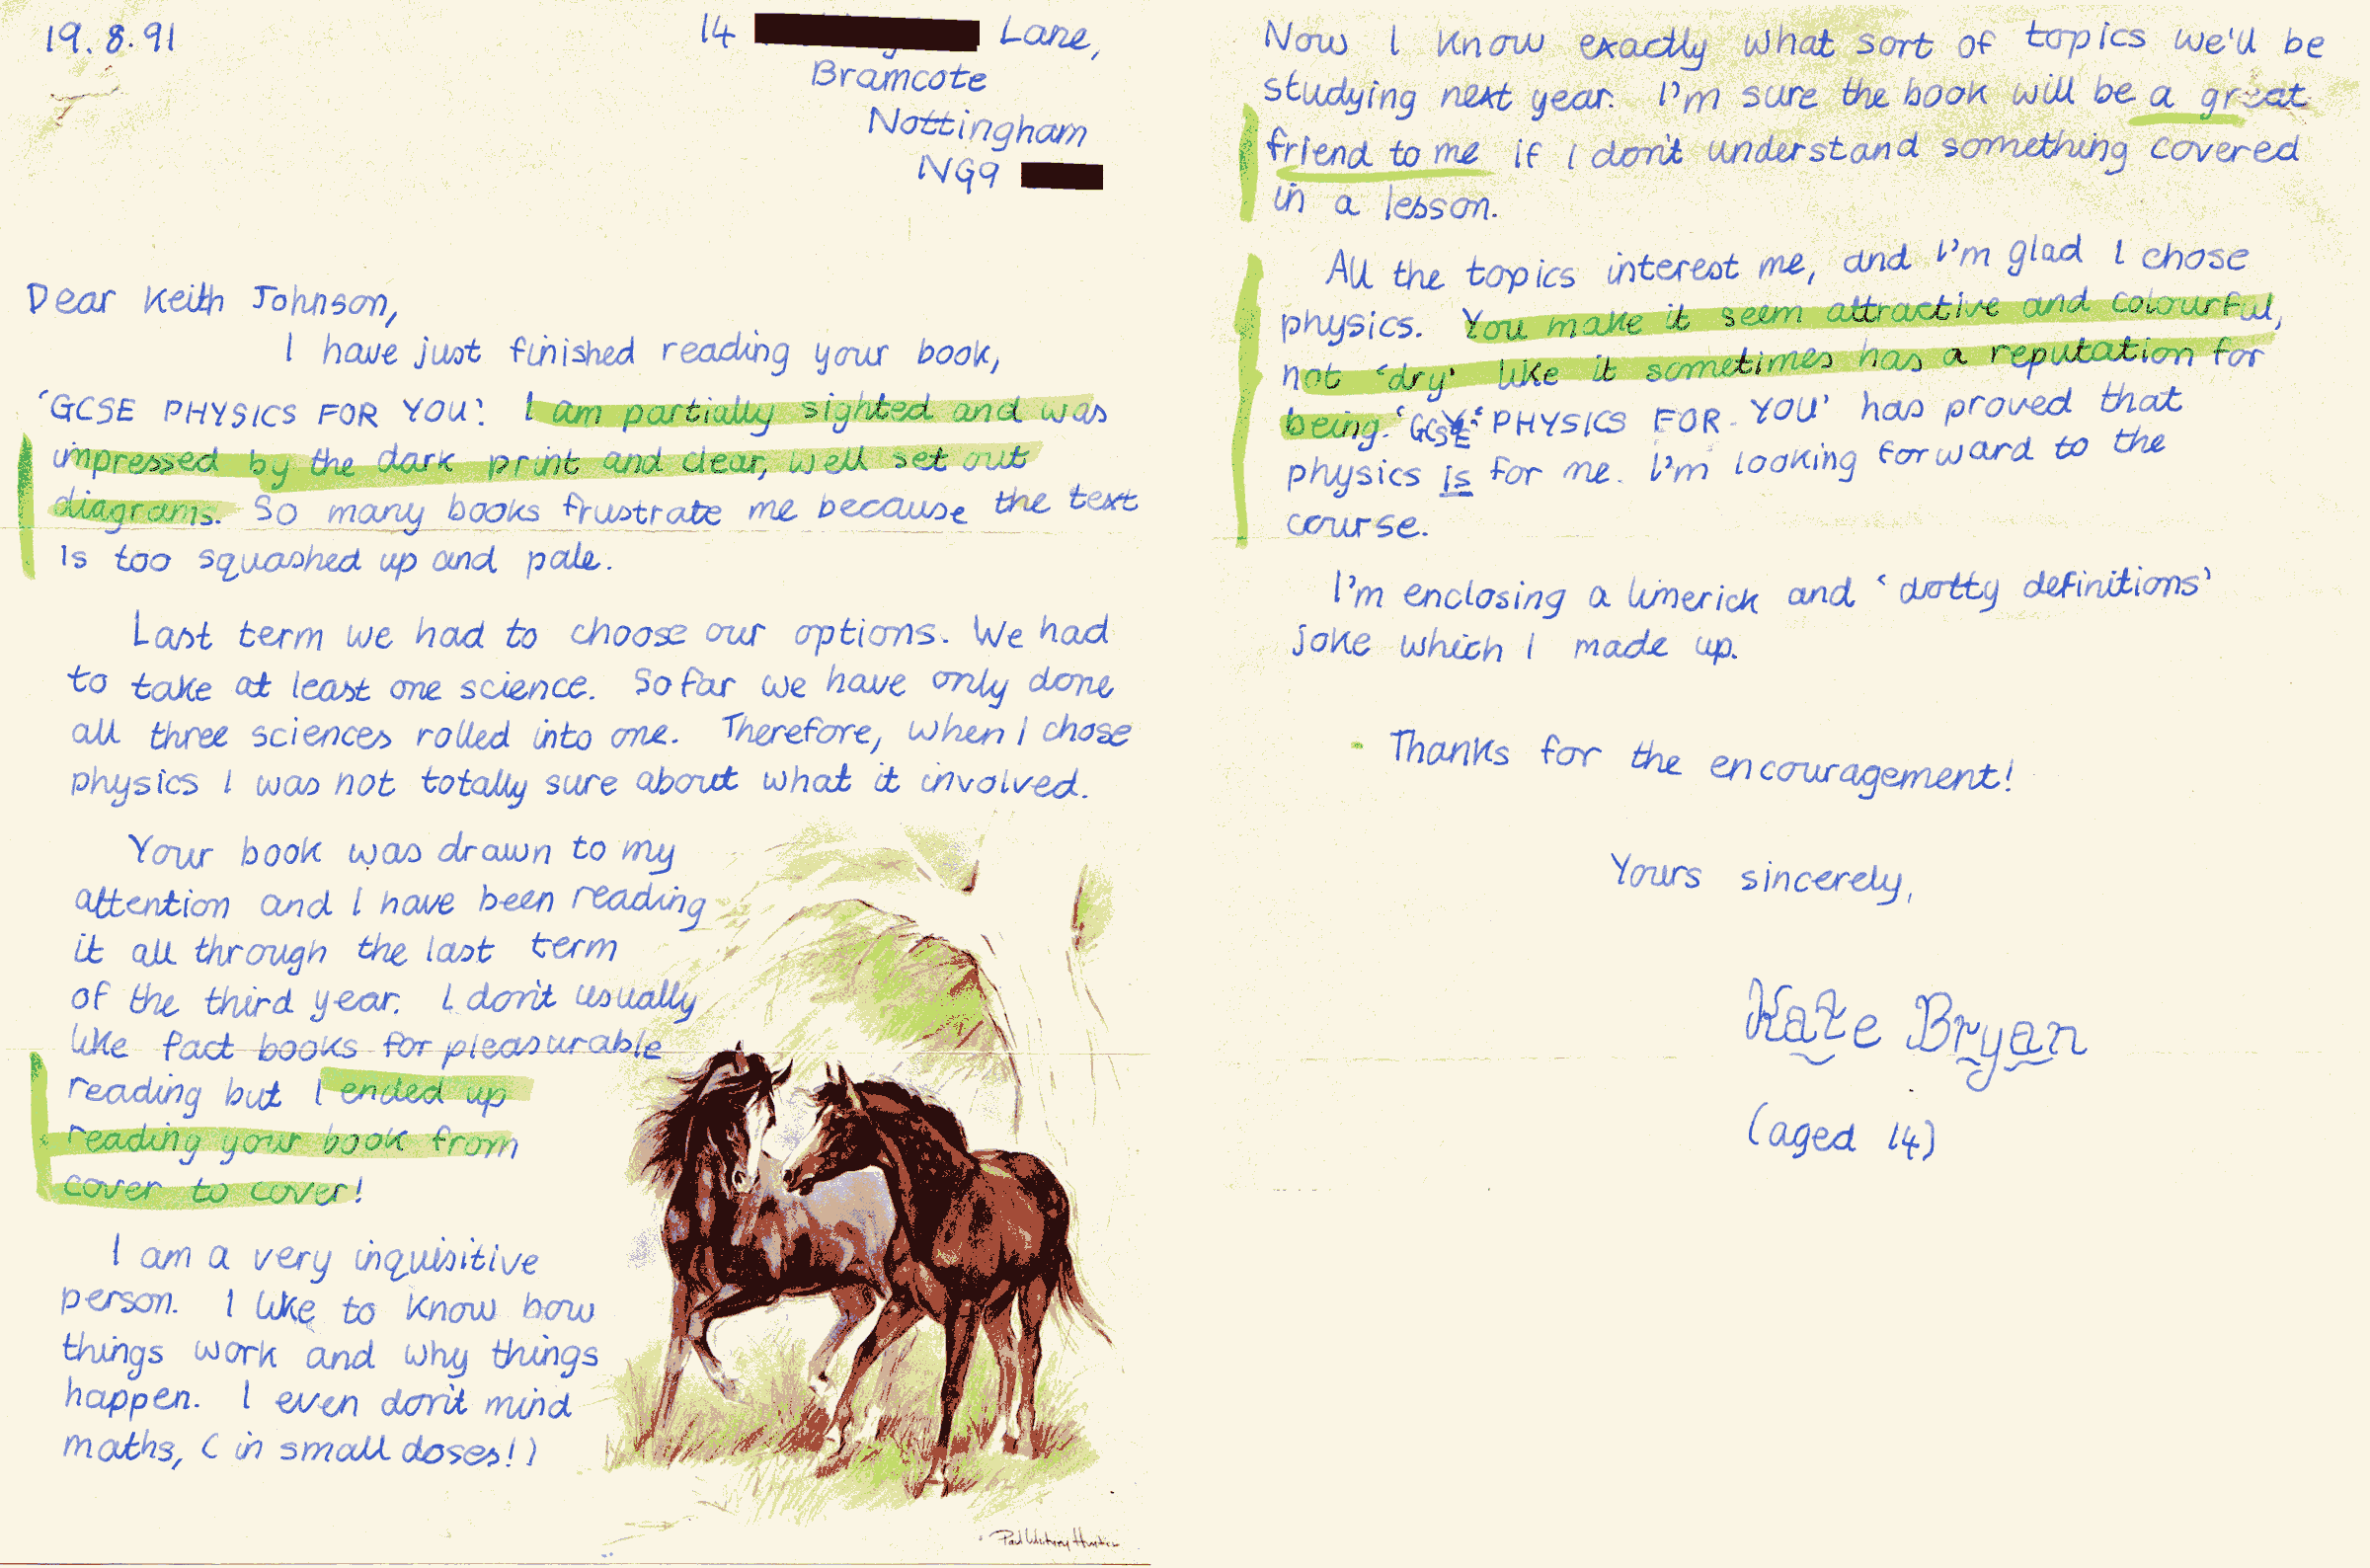 19.8.91
14 Lane,
Bramcote
Nottingham
NG9
Dear Keith Johnson,
I have just finished reading your book,
'GCSE PHYSICS FOR YOU'. I am partially sighted and was
impressed by the dark print and clear, well set out
diagrams. So many books frustrate me because the text
is too squashed up and pale.
Last term we had to choose our options. We had
to take at least one science. So far we have only done
all three sciences rolled into one. Therefore, when I chose
physics I was not totally sure about what it involved.
Your book was drawn to my
attention and I have been reading
it all through the last term
of the third year. I don't usually
like fact books for pleasurable
reading but I ended up
reading your book from
cover to cover!
I am a very inquisitive
person. I like to know how
things work and why things
happen. I even don't mind
maths, (in small doses!)
Now I know exactly what sort of topics we'll be
studying next year. I'm sure the book will be a great
friend to me if I don't understand something covered
in a lesson.
All the topics interest me, and I'm glad I chose
physics. You make it seem attractive and colourful,
not 'dry' like it sometimes has a reputation for
being. 'GCSE PHYSICS FOR YOU' has proved that
physics is for me. I'm looking forward to the
course.
I'm enclosing a limerick and 'dotty definitions'
joke which I made up.
Thanks for the encouragement!
Yours sincerely,
Kate Bryan
(aged 14)